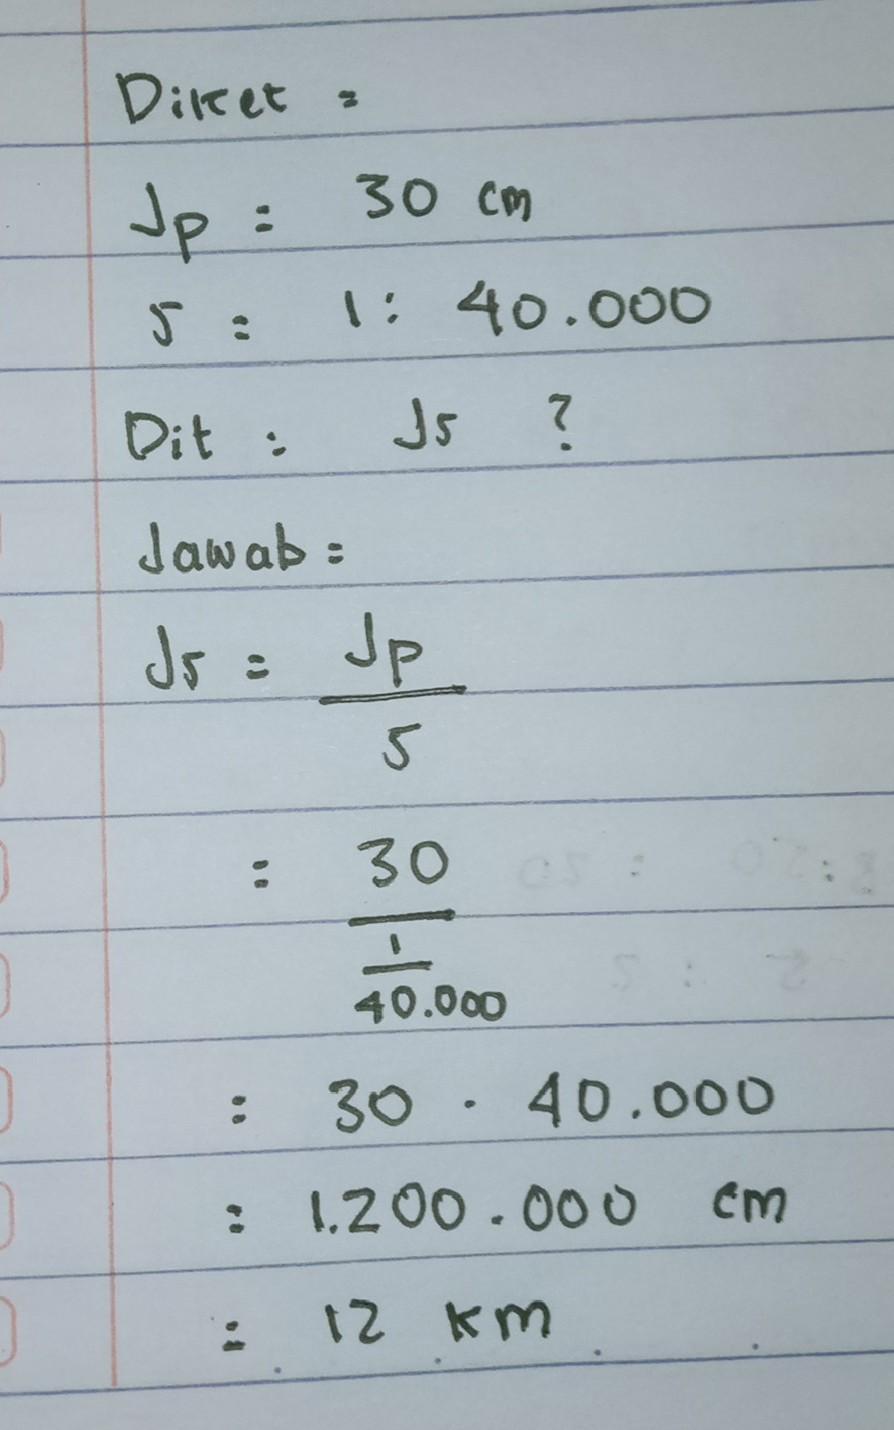 Diket =
Jp = 30 cm
S = 1 : 40.000
Dit : Js ?
Jawab =
Js = Jp
S
= 30
1
40.000
= 30 . 40.000
= 1.200.000 cm
= 12 km